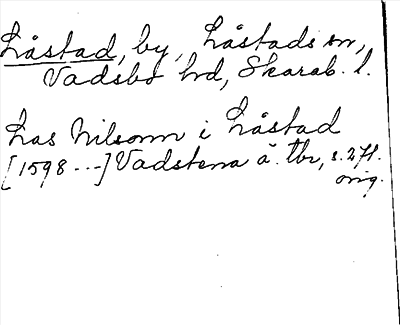 Låstad, by, Låstads sn,
Vadsbo hd, Skarab. l.
Las Nilsonn i Låstad
[1598 ...] Vadstena ä. tbr, s. 271.
orig.